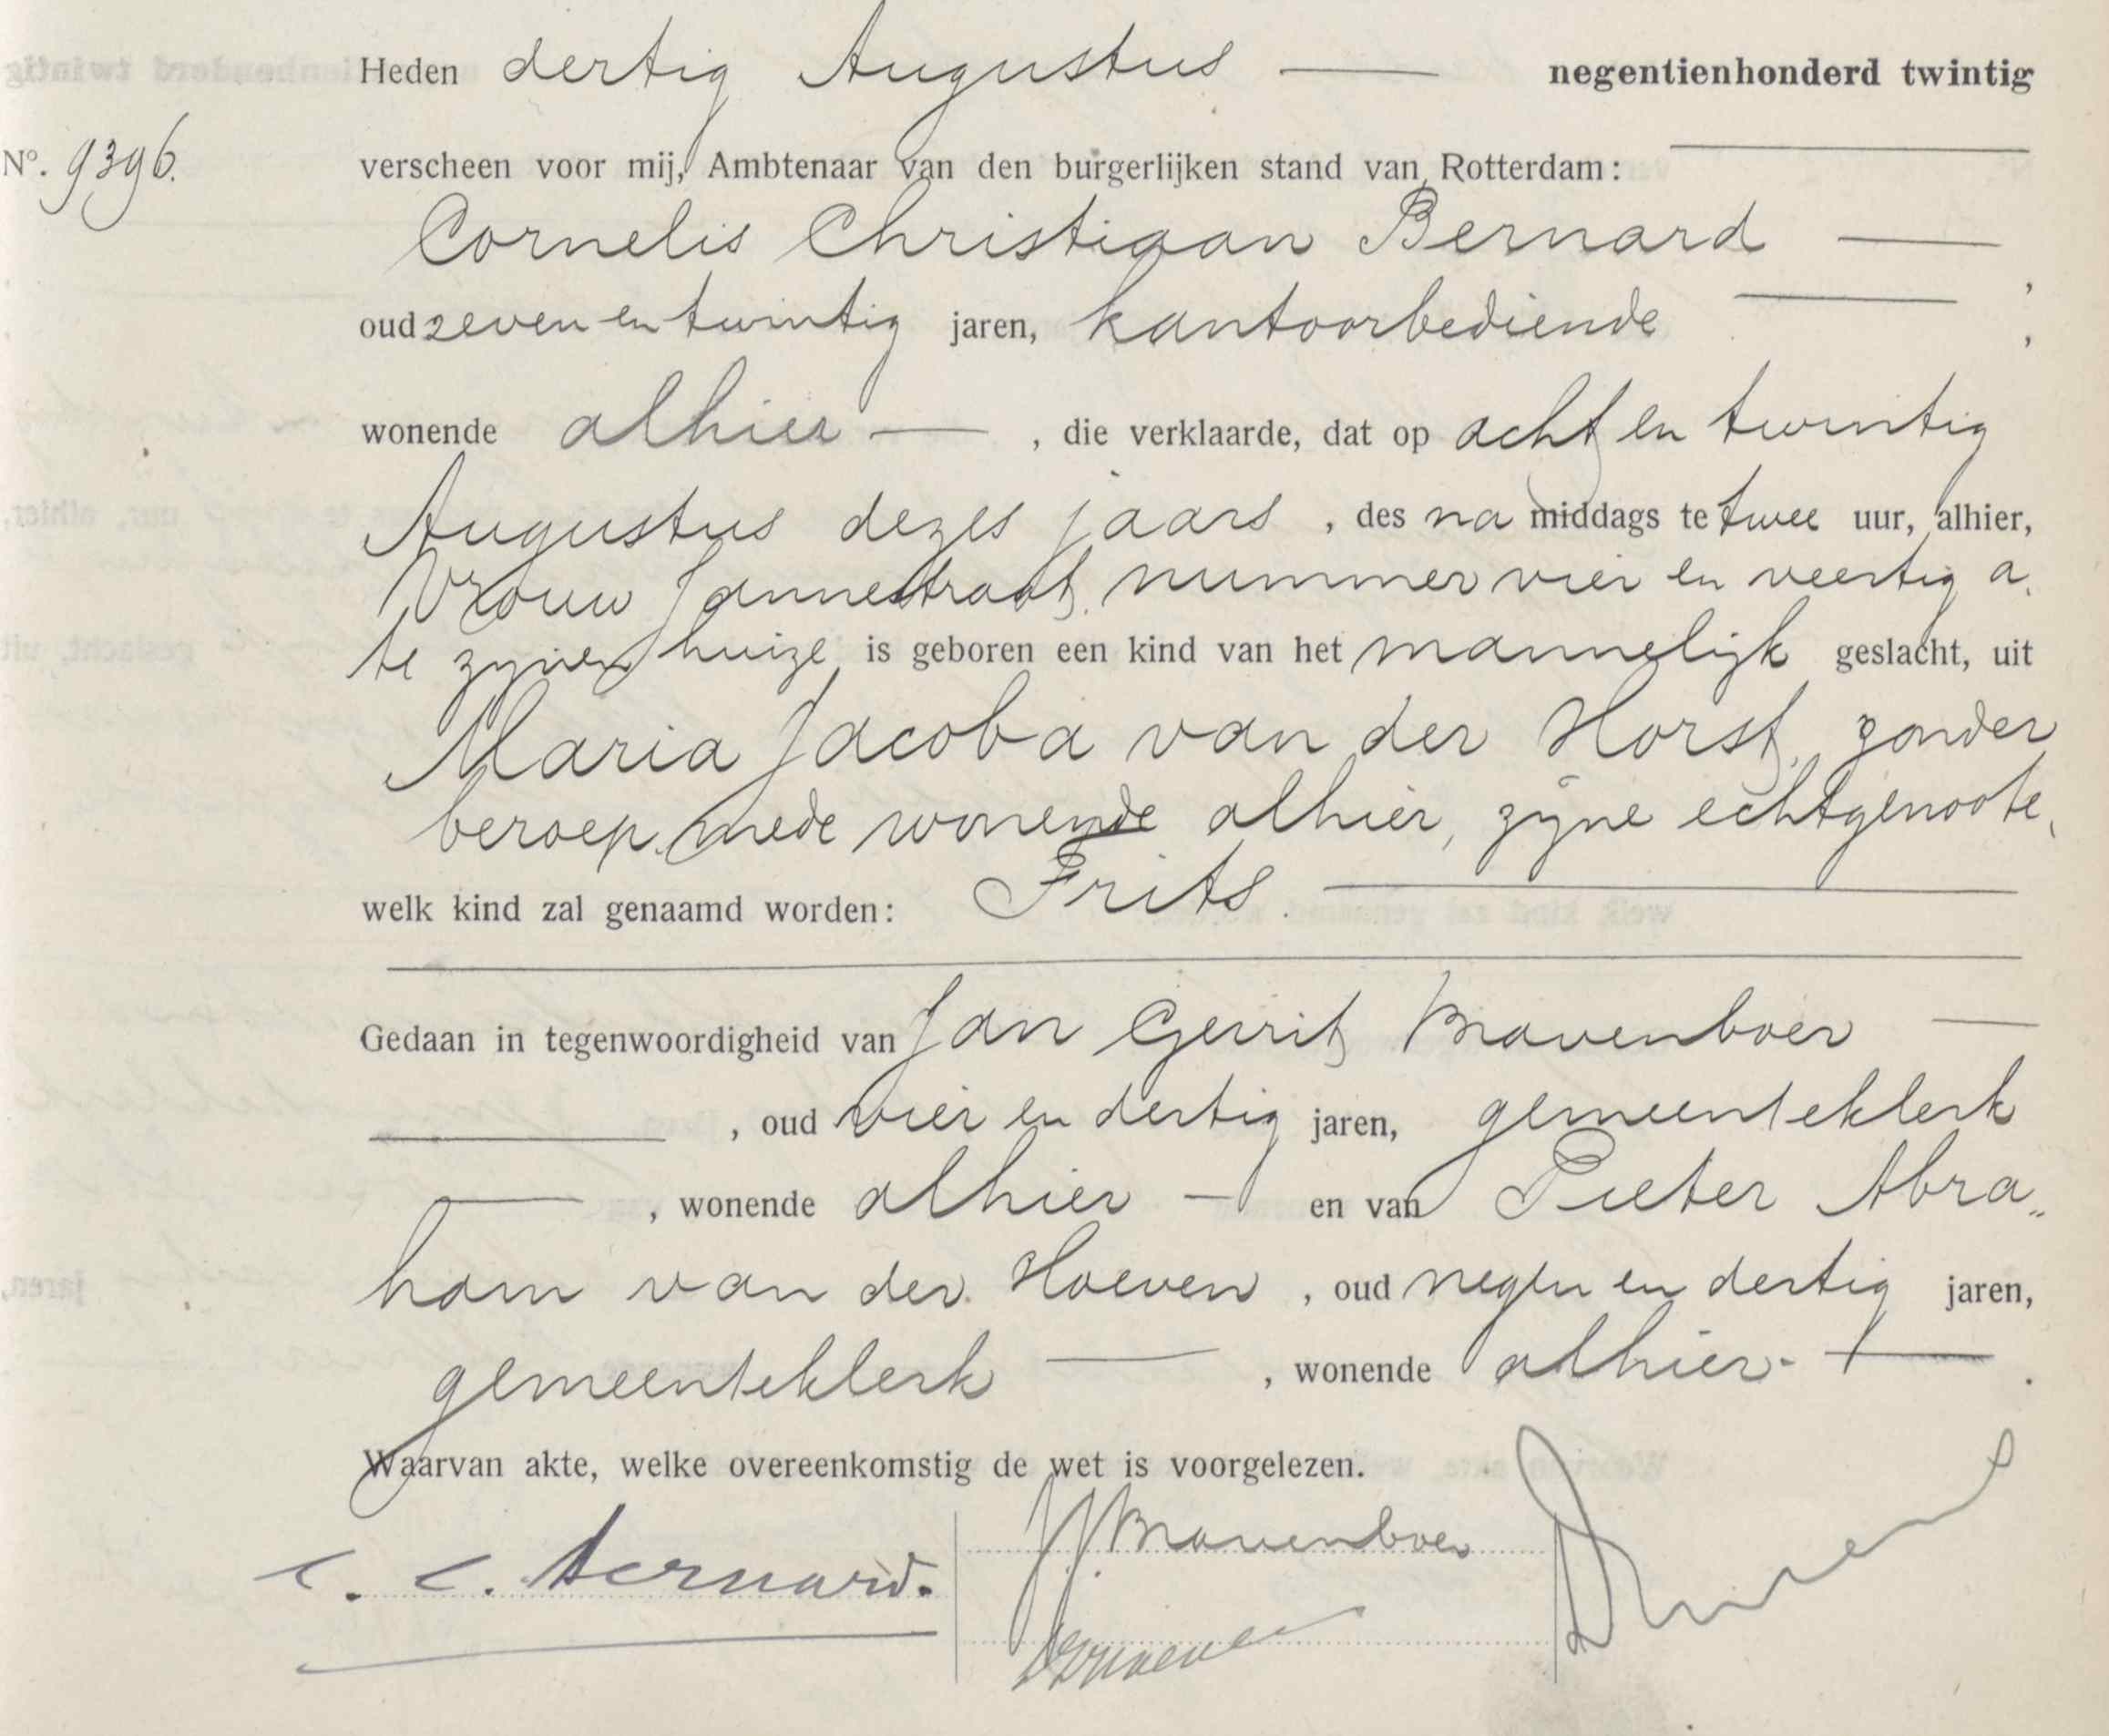 Heden dertig Augustus — negentienhonderd twintig
Nº. 9396. verscheen voor mij, Ambtenaar van den burgerlijken stand van Rotterdam:
Cornelis Christiaan Bernard — ,
oud zeven en twintig jaren, kantoorbediende ,
wonende alhier — , die verklaarde, dat op acht en twintig
Augustus dezes jaars , des na middags te twee uur, alhier,
Vrouw Jannestraat, nummer vier en veertig a.
te zijnen huize, is geboren een kind van het mannelijk geslacht, uit
Maria Jacoba van der Horst, zonder
beroep, mede wonende alhier, zijne echtgenoote,
welk kind zal genaamd worden: Frits.
Gedaan in tegenwoordigheid van Jan Gerrit Mavenboer —
, oud vier en dertig jaren, gemeenteklerk
— , wonende alhier — en van Pieter Abra„
ham van der Hoeven , oud negen en dertig jaren,
gemeenteklerk — , wonende alhier. — .
Waarvan akte, welke overeenkomstig de wet is voorgelezen.
C. C. Bernard.
J. G. Mavenboer